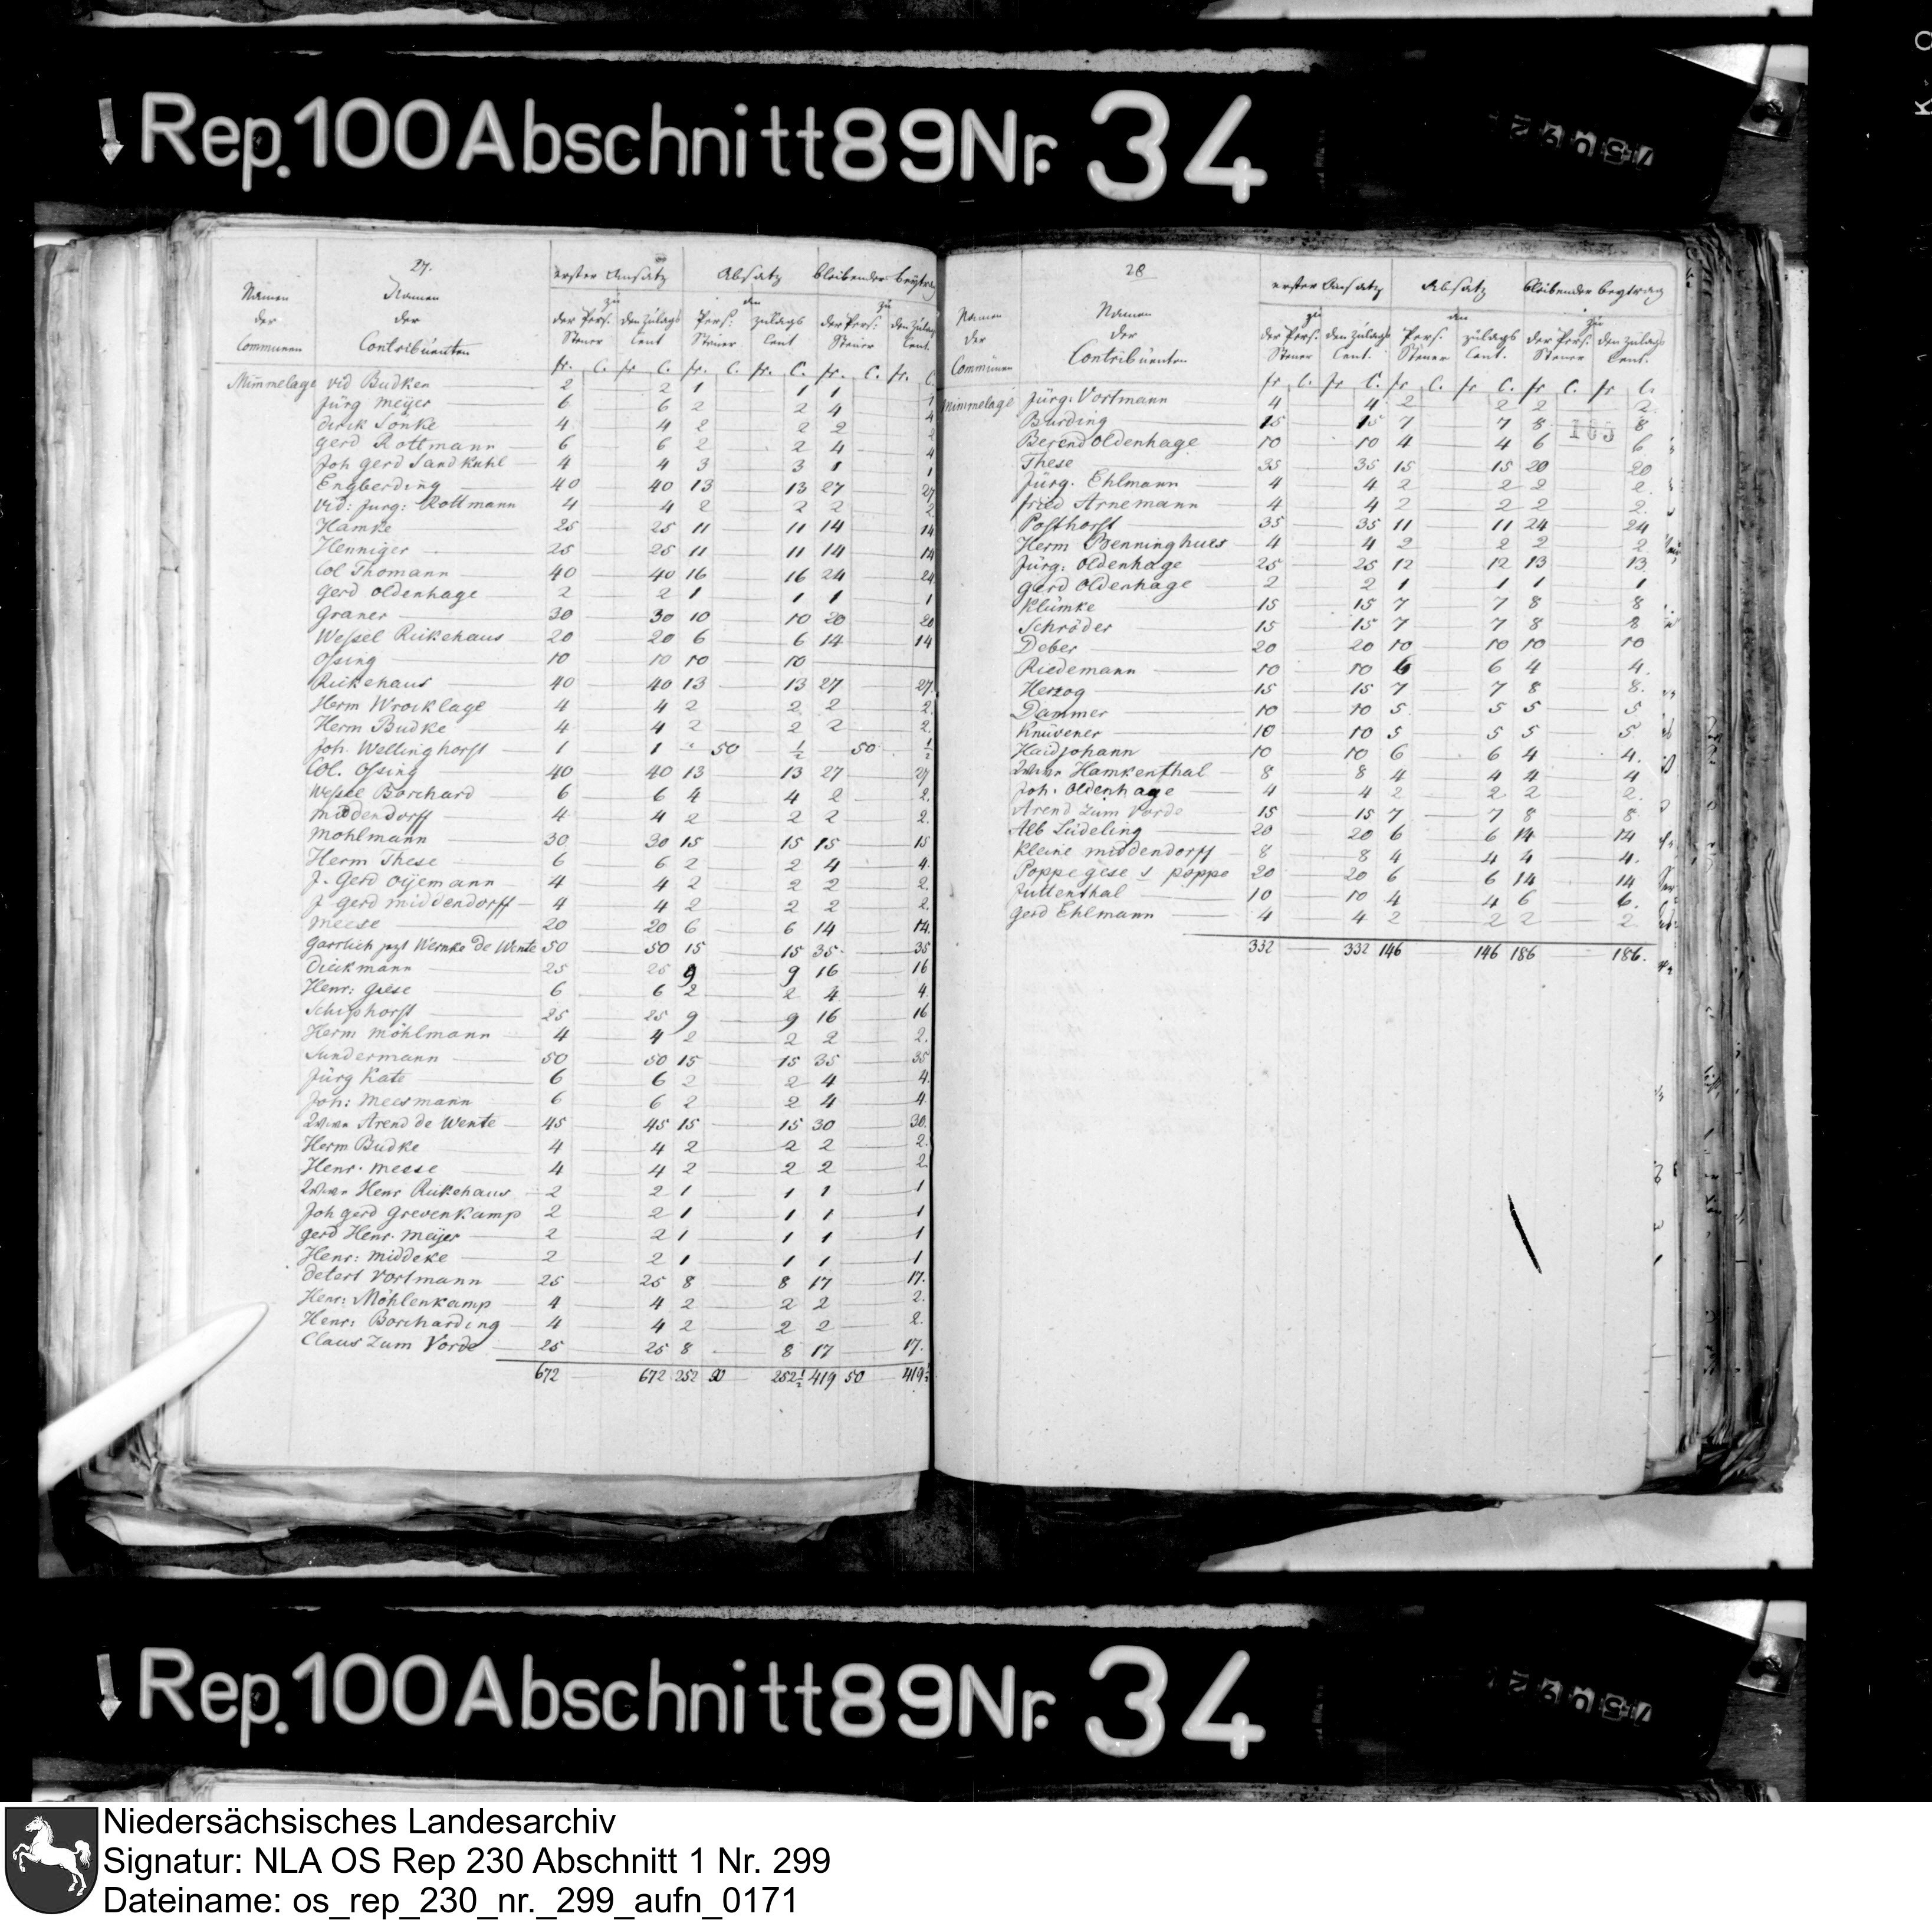 Rep. 100 Abschnitt 89 Nr. 34
27.
erster Ansatz Absatz bleibender beytrag
Namen Namen zu den zu
der der der Pers. den Zulags Pers: Zulags der Pers: den Zulags
Communen Contribuenten Steuer Cent Steuer Cent Steuer Cent.
fr. C. fr C. fr. C. fr. C. fr. C. fr. C.
Mimmelage vid Budken 2 2 1 1 1 1
Jürg Meyer 6 6 2 2 4 4
dirik Sönke 4 4 2 2 2 2
gerd Rottmann 6 6 2 2 4 4
Joh gerd Sandkuhl 4 4 3 3 1 1
Engberding 40 40 13 13 27 27
vid: Jurg: Rottmann 4 4 2 2 2 2
Hamke 25 25 11 11 14 14
Henniger 25 25 11 11 14 14
Col Thomann 40 40 16 16 24 24
gerd oldenhage 2 2 1 1 1 1
Graner 30 30 10 10 20 20
Wessel Rükehaus 20 20 6 6 14 14
Ossing 10 10 10 10
Rükehaus 40 40 13 13 27 27.
Herm Wrocklage 4 4 2 2 2 2.
Herm Budke 4 4 2 2 2 2.
Joh. Wellinghorst 1 1 50 ½ 50 ½
Col. Ossing 40 40 13 13 27 27
Wessel Borchard 6 6 4 4 2 2.
middendorff 4 4 2 2 2 2.
Möhlmann 30 30 15 15 15 15
Herm These 6 6 2 2 4 4.
J. Gerd oijemann 4 4 2 2 2 2.
J gerd middendorff 4 4 2 2 2 2.
Meese 20 20 6 6 14 14.
garrlich jezt Wernke de Wente 50 50 15 15 35 35
Dieckmann 25 25 9 9 16 16
Henr: giese 6 6 2 2 4 4
Schiphorst 25 25 9 9 16 16
Herm möhlmann 4 4 2 2 2 2.
Sundermann 50 50 15 15 35 35
Jürg Kate 6 6 2 2 4 4.
Joh: Meesmann 6 6 2 2 4 4
Arend de Wente 45 45 15 15 30 30.
Herm Budke 4 4 2 2 2 2.
Henr. meese 4 4 2 2 2 2
Henr Rükehaus 2 2 1 1 1 1
Joh gerd grevenkamp 2 2 1 1 1 1
gerd Henr. meijer 2 2 1 1 1 1
Henr: middeke 2 2 1 1 1 1
detert Vortmann 25 25 8 8 17 17.
Henr: Möhlenkamp 4 4 2 2 2 2.
Henr: Borcharding 4 4 2 2 2 2.
Claus Zum Vorde 25 25 8 8 17 17.
672 672 252 50 252½ 419 50 419½
28
erster Ansatz Absatz bleibender beytrag
Namen Namen zu den zu
der der der Pers. den Zulags Pers. Zulags der Pers: den Zulags
Communen Contribuenten Steuer Cent. Steuer Cent. Steuer Cent.
fr C. fr C. fr C. fr C. fr C. fr C.
Mimmelage Jürg: Vortmann 4 4 2 2 2 2.
Burding 15 15 7 7 8 8
Berend oldenhage 10 10 4 4 6 6
These 35 35 15 15 20 20
Jürg. Ehlmann 4 4 2 2 2 2.
fried Arnemann 4 4 2 2 2 2.
Posthorst 35 35 11 11 24 24
Herm Benninghues 4 4 2 2 2 2
Jürg: oldenhage 25 25 12 12 13 13.
gerd oldenhage 2 2 1 1 1 1
Klümke 15 15 7 7 8 8
Schröder 15 15 7 7 8 8
Deber 20 20 10 10 10 10
Riedemann 10 10 6 6 4 4.
Herzog 15 15 7 7 8 8.
Dammer 10 10 5 5 5 5
Knüvener 10 10 5 5 5 5
Haidjohann 10 10 6 6 4 4.
Hamkenthal 8 8 4 4 4 4
Joh. oldenhage 4 4 2 2 2 2.
Arend zum Vorde 15 15 7 7 8 8
Alb Lüdeling 20 20 6 6 14 14
Kleine middendorff 8 8 4 4 4 4.
Poppe gese s poppe 20 20 6 6 14 14
Juttenthal 10 10 4 4 6 6.
gerd Ehlmann 4 4 2 2 2 2
332 332 146 146 186 186.
Rep. 100 Abschnitt 89 Nr. 34
Niedersächsisches Landesarchiv
Signatur: NLA OS Rep 230 Abschnitt 1 Nr. 299
Dateiname: os_rep_230_nr._299_aufn_0171